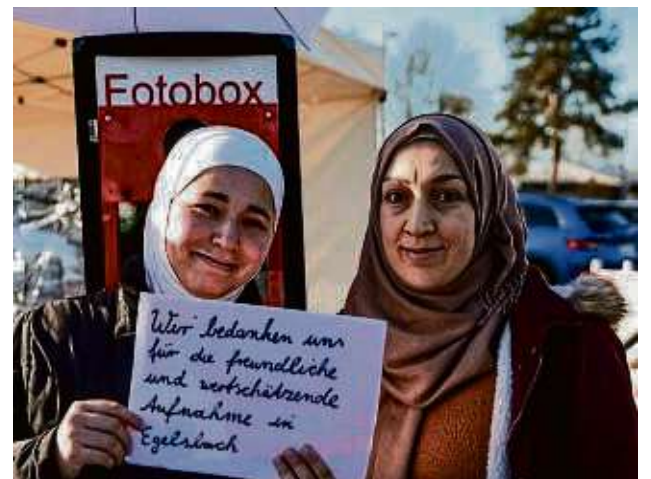 Fotobox
Wir bedanken uns
für die freundliche
und wertschätzende
Aufnahme in
Egelsbach